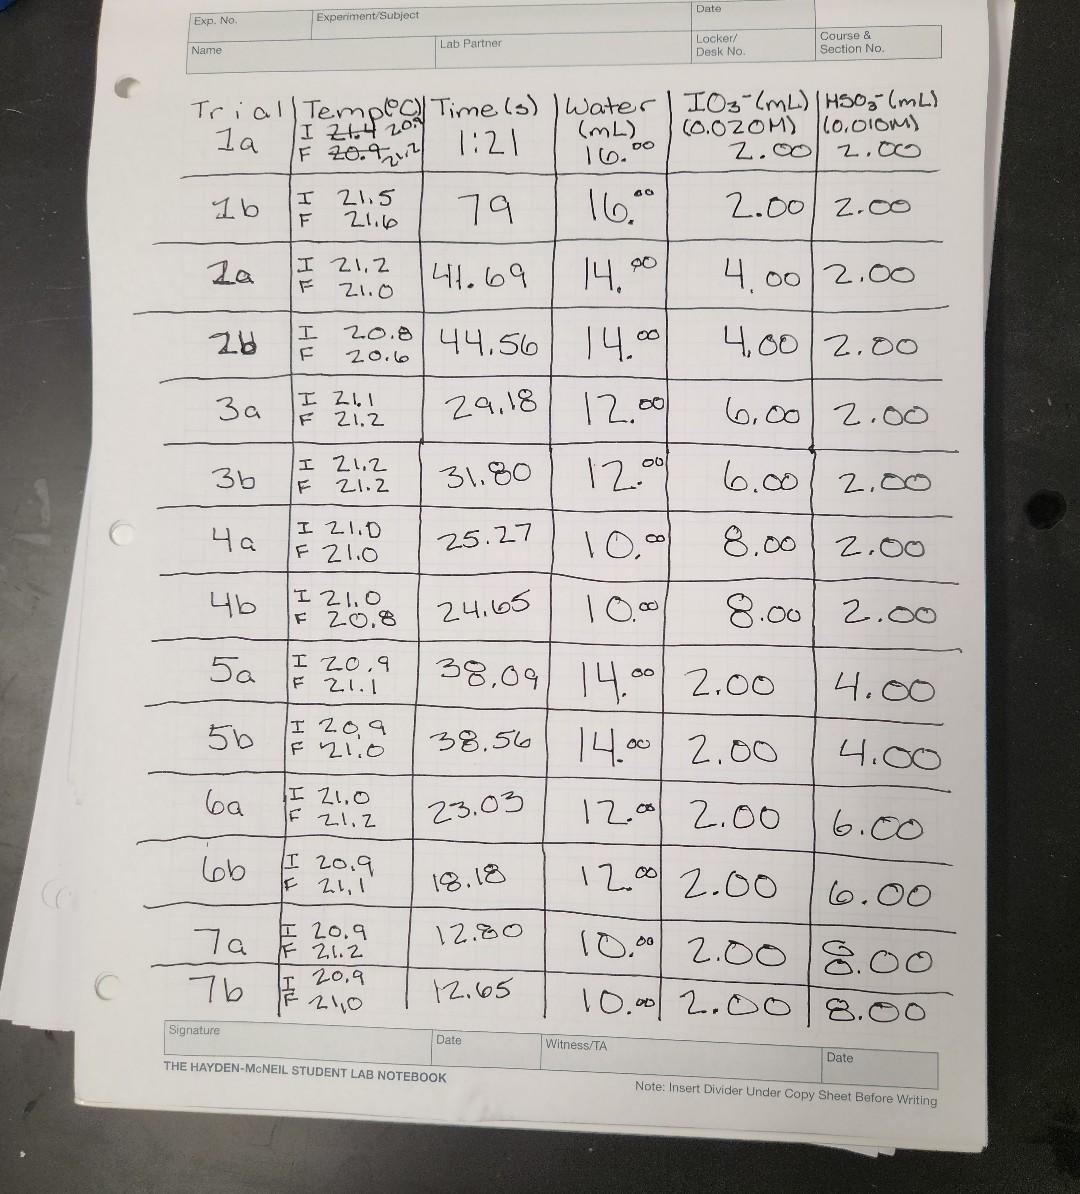 Exp. No. Experiment/Subject Date
Name Lab Partner Locker/ Desk No. Course & Section No.
Trial Temp(°C) Time (s) Water (mL) IO3⁻ (mL) (0.020M) HSO3⁻ (mL) (0.010M)
1a I 21.4 20.9 F 20.9 21.2 1:21 16.00 2.00 2.00
1b I 21.5 F 21.6 79 16.00 2.00 2.00
2a I 21.2 F 21.0 41.69 14.00 4.00 2.00
2b I 20.8 F 20.6 44.56 14.00 4.00 2.00
3a I 21.1 F 21.2 29.18 12.00 6.00 2.00
3b I 21.2 F 21.2 31.80 12.00 6.00 2.00
4a I 21.0 F 21.0 25.27 10.00 8.00 2.00
4b I 21.0 F 20.8 24.65 10.00 8.00 2.00
5a I 20.9 F 21.1 38.09 14.00 2.00 4.00
5b I 20.9 F 21.0 38.56 14.00 2.00 4.00
6a I 21.0 F 21.2 23.03 12.00 2.00 6.00
6b I 20.9 F 21.1 18.18 12.00 2.00 6.00
7a I 20.9 F 21.2 12.80 10.00 2.00 8.00
7b I 20.9 F 21.0 12.65 10.00 2.00 8.00
Signature Date Witness/TA Date
THE HAYDEN-McNEIL STUDENT LAB NOTEBOOK Note: Insert Divider Under Copy Sheet Before Writing